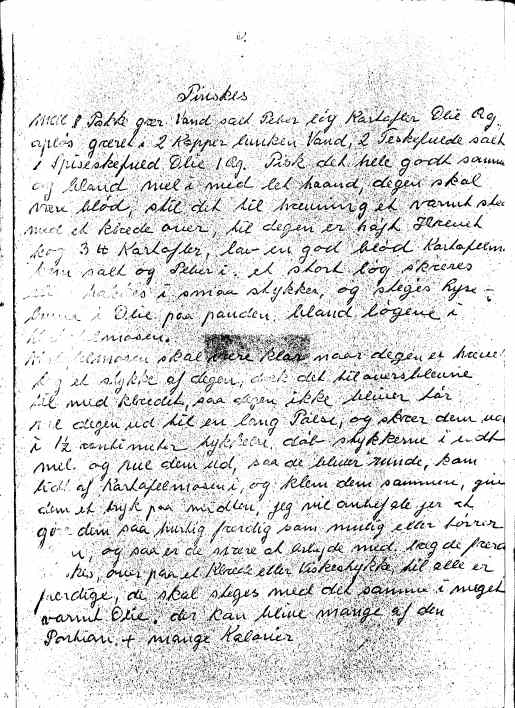 Piriskes
Mell 1 Pakke gær. Vand salt Peber løg Kartofler Olie Æg.
opløs gæren i 2 Kopper lunken Vand, 2 Teskefulde salt
1 Spiseskefuld Olie 1 Æg. Pisk det hele godt samme
og bland mel i med let haand, degen skal
være blød, stil det til hævning et varmt ste
med et klæde over, til degen er højt Hævet
kog 3 Kartofler, lav en god blød Kartofelm
salt og Peber i. et stort løg skæres
i smaa stykker, og steges lyse-
brune i Olie paa panden. bland løgene i
Kartofelmosen.
Kartofelmosen skal være klar naar degen er hævet
tag et stykke af degen, dæk det tiloversblevne
til med klædet, saa degen ikke bliver tør
rul degen ud til en lang Pølse, og skær dem ud
i 1½ centimeter tykkelse, døb stykkerne i lidt
mel. og rul dem ud, saa de bliver runde, kom
lidt af Kartofelmosen i, og klem dem sammen, giv
dem et tryk paa midten, jeg vil anbefale jer at
gøre dem saa hurtig færdig som mulig eller tørrer
og saa er de svære at arbejde med. læg de færd
over paa et Klæde etter Viskestykke, til alle er
færdige, de skal steges med det samme i meget
varmt Olie. der kan blive mange af den
Portion. + mange Kalorier